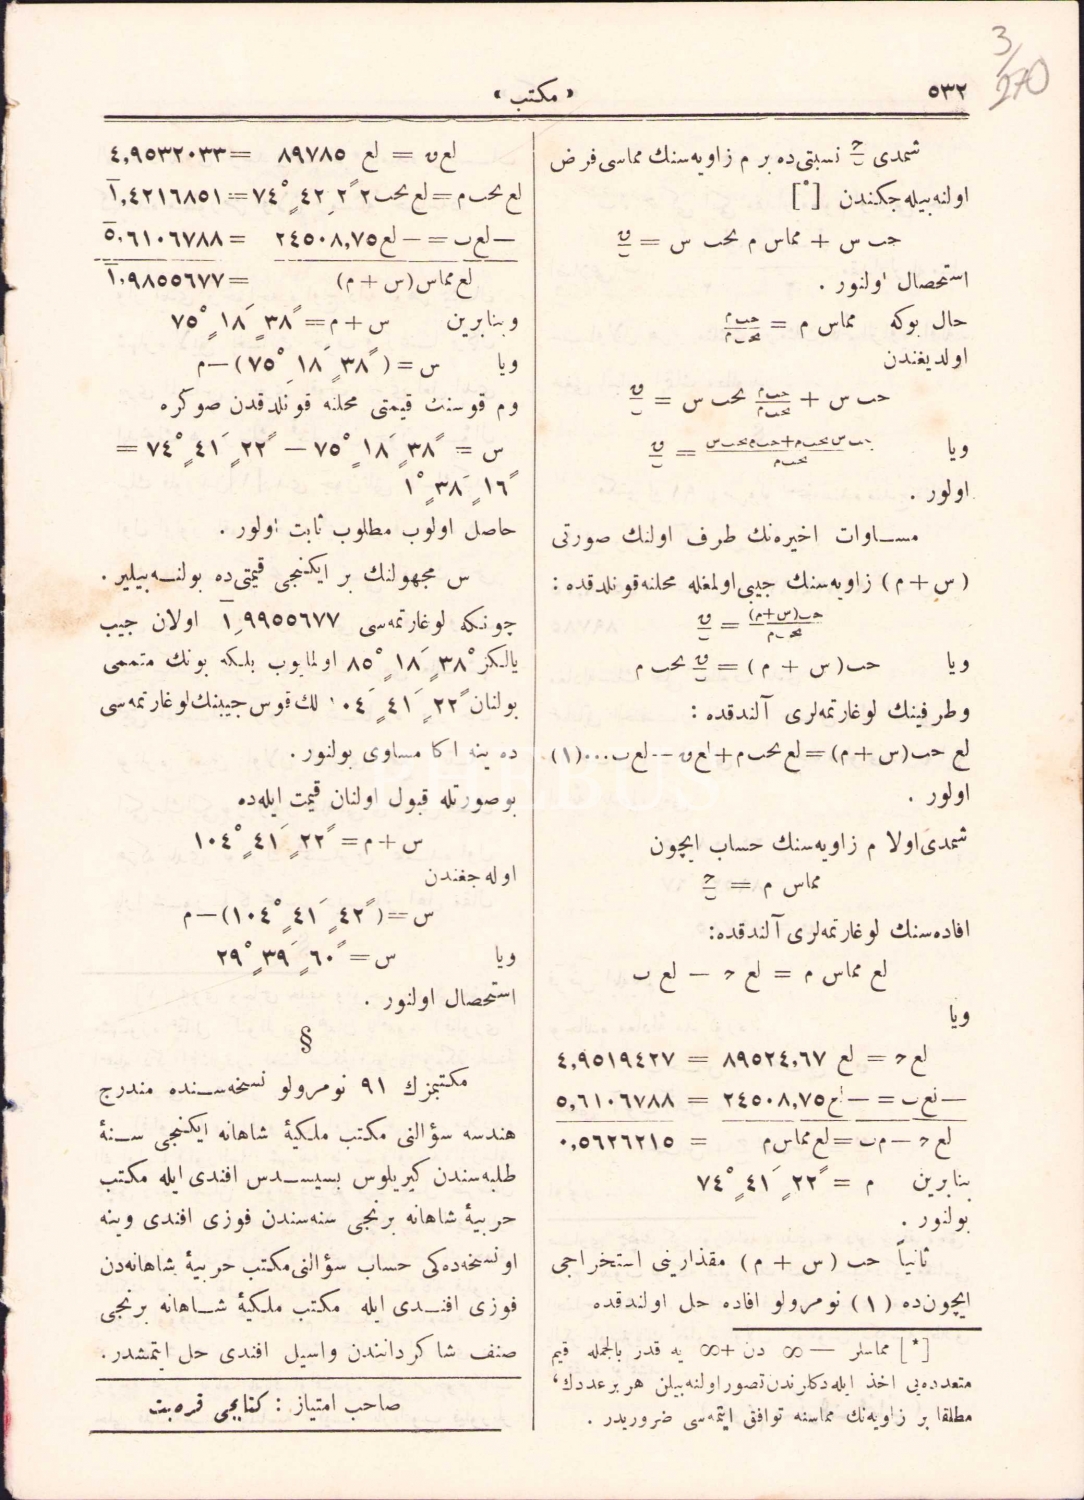 3/270
٥٣٢
« مكتب »
شمدی ح/ب نسبتی‌ده بر م زاویه‌سنك مماسی فرض
اولنه‌بیله‌جكندن [*]
حب س + مماس م تحب س = ں/ب
استحصال اولنور .
حال بوكه مماس م = حب م/تحب م
اولدیغندن
حب س + حب م/تحب م تحب س = ں/ب
ویا حب س تحب م + حب م تحب س/تحب م = ں/ب
اولور .
مســاوات اخیره‌نك طرف اولنك صورتی
(س + م) زاویه‌سنك جیبی اولمغله محلنه قونلدقده :
حب(س+م)/تحب م = ں/ب
ویا حب(س + م) = ں/ب تحب م
وطرفینك لوغارتمه‌لری آلندقده :
لع حب(س + م) = لع تحب م + لع ں -- لع ب...(١)
اولور .
شمدی اولا م زاویه‌سنك حساب ایچون
مماس م = ح/ب
افاده‌سنك لوغارتمه‌لری آلندقده:
لع مماس م = لع ح — لع ب
ویا
لع ح = لع ٨٩٥٢٤,٦٧ = ٤,٩٥١٩٤٢٧
— لع ب = — لع ٢٤٥٠٨,٧٥ = ٥,٦١٠٦٧٨٨
لع ح — م ب = لع مماس م = ٠,٥٦٢٦٢١٥
بنابرین م = ٢٢ً ٤١َ ٧٤°
بولنور .
ثانیاً حب (س + م) مقدارینی استخراجی
ایچون‌ده (١) نومرولو افاده حل اولندقده
[*] مماسلر — ∞ دن +∞ یه قدر بالجمله قیم
متعدده‌یی اخذ ایله‌دكلرندن تصور اولنه‌بیلن هر بر عددك،
مطلقا بر زاویه‌نك مماسنه توافق ایتمه‌سی ضروریدر .
لع ں = لع ٨٩٧٨٥ = ٤,٩٥٣٢٠٣٣
لع تحب م = لع تحب ٢٢ً ٤٢َ ٧٤° = ١,٤٢١٦٨٥١
— لع ب = — لع ٢٤٥٠٨,٧٥ = ٥,٦١٠٦٧٨٨
لع مماس(س + م) = ١,٩٨٥٥٦٧٧
وبنابرین س + م = ٣٨ً ١٨َ ٧٥°
ویا س = (٣٨ً ١٨َ ٧٥°) — م
وم قوسنك قیمتی محلنه قونلدقدن صوكره
س = ٣٨ً ١٨َ ٧٥° — ٢٢ً ٤١َ ٧٤° =
١٦ً ٣٨َ ١°
حاصل اولوب مطلوب ثابت اولور .
س مجهولنك بر ایكنجی قیمتی‌ده بولنـه‌بیلیر .
چونكه لوغارتمه‌سی ١,٩٩٥٥٦٧٧ اولان جیب
یالكز ٣٨ً ١٨َ ٨٥° اولمایوب بلكه بونك متممی
بولنان ٢٢ً ٤١َ ١٠٤ لك قوس جیبنك لوغارتمه‌سی
ده ینه اكا مساوی بولنور.
بو صورتله قبول اولنان قیمت ایله‌ده
س + م = ٢٢ً ٤١َ ١٠٤°
اوله‌جغندن
س = (٤٢ً ٤١َ ١٠٤°) — م
ویا س = ٦٠ً ٣٩َ ٢٩°
استحصال اولنور .
§
مكتبمزك ٩١ نومرولو نسخه‌سـنده مندرج
هندسه سؤالنی مكتب ملكیهٔ شاهانه ایكنجی سـنهٔ
طلبه‌سندن كیریلوس بسیسـدس افندی ایله مكتب
حربیهٔ شاهانه برنجی سنه‌سندن فوزی افندی وینه
او نسخه‌ده‌كی حساب سؤالنی مكتب حربیهٔ شاهانه‌دن
فوزی افنـدی ایله مكتب ملكیهٔ شـاهانه برنجی
صنف شاكرداننندن واسیل افندی حل ایتمشدر.
صاحب امتیاز : كتابجی قره‌بت